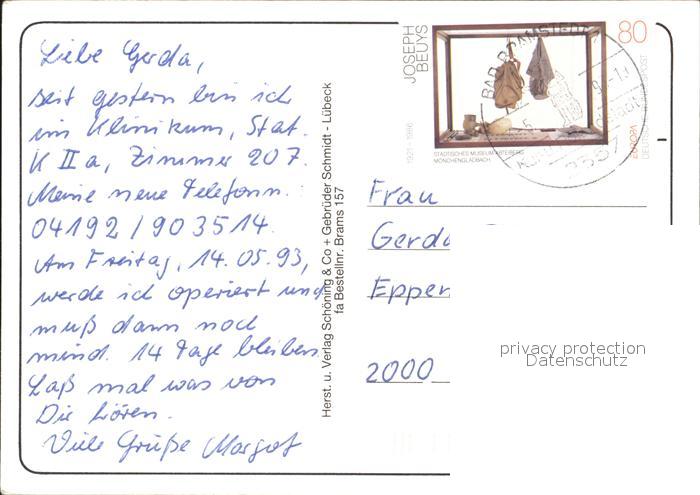 Liebe Gerda,
seit gestern bin ich
im Klinikum, Stat.
K II a, Zimmer 207.
Meine neue Telefonn.:
04192/903514.
Am Freitag, 14.05.93,
werde ich operiert und
muß dann noch
mind. 14 Tage bleiben.
Laß mal was von
Dir hören.
Viele Grüße Margot
Herst. u. Verlag Schöning & Co + Gebrüder Schmidt - Lübeck
fa Bestellnr. Brams 157
JOSEPH
BEUYS
1921 - 1986
80
STÄDTISCHES MUSEUM ABTEIBERG
MÖNCHENGLADBACH
EUROPA
DEUTSCHE BUNDESPOST
BAD BRAMSTEDT
Frau
Gerda
Eppen
2000
privacy protection
Datenschutz